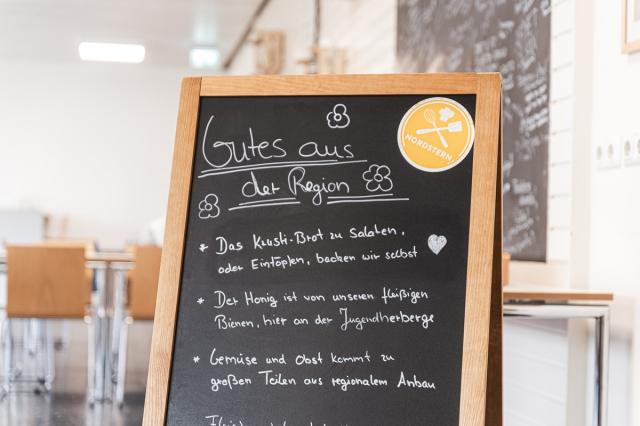 Gutes aus
der Region
NORDSTERN
* Das Krusti-Brot zu Salaten,
oder Eintöpfen, backen wir selbst
* Der Honig ist von unseren fleißigen
Bienen, hier an der Jugendherberge
* Gemüse und Obst kommt zu
großen Teilen aus regionalem Anbau